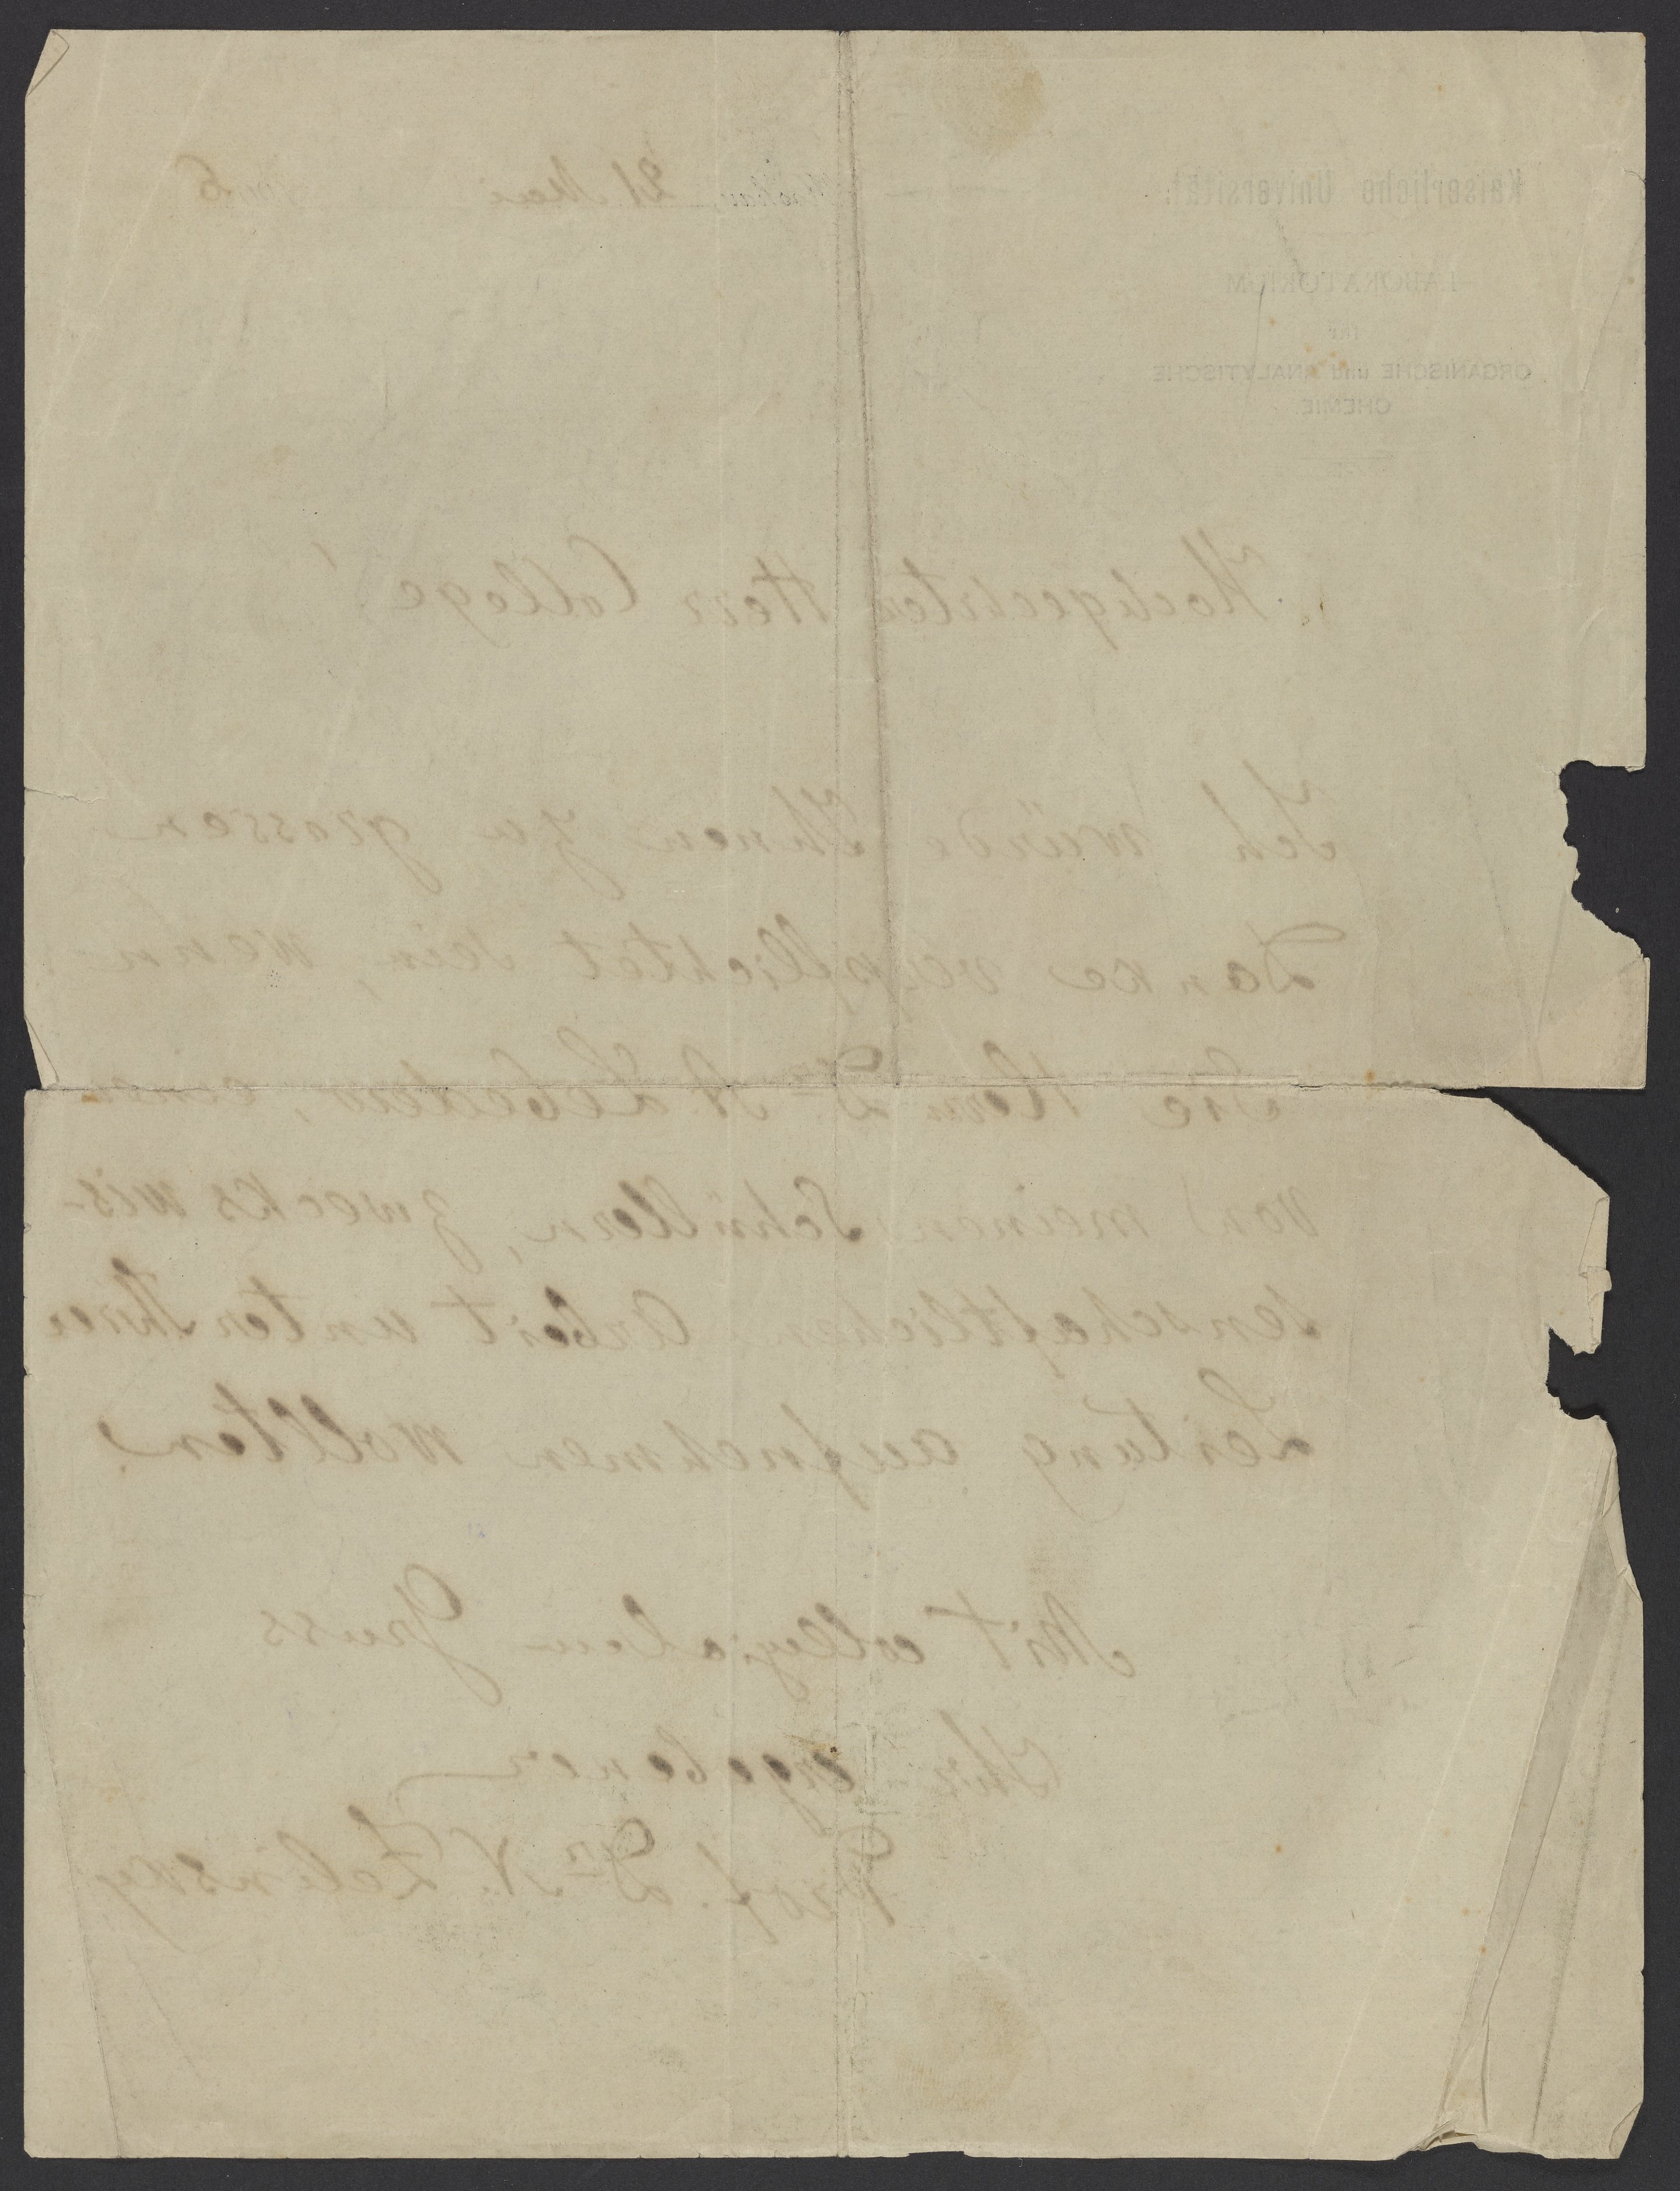 Kaiserliche Universität.
Moskau, 21 Mai
LABORATORIUM
für
ORGANISCHE und ANALYTISCHE
CHEMIE
Hochgeehrter Herr College!
Ich würde Ihnen zu grossen
Danke verpflichtet sein, wenn
Sie Herrn Dr A. Lebedew, einen
von meinen Schüllern, zwecks wis-
senschaftlicher Arbeit unter Ihrer
Leitung aufnehmen wollten.
Mit collegialem Gruss
Ihr ergebener
Prof. Dr N. Zelinsky